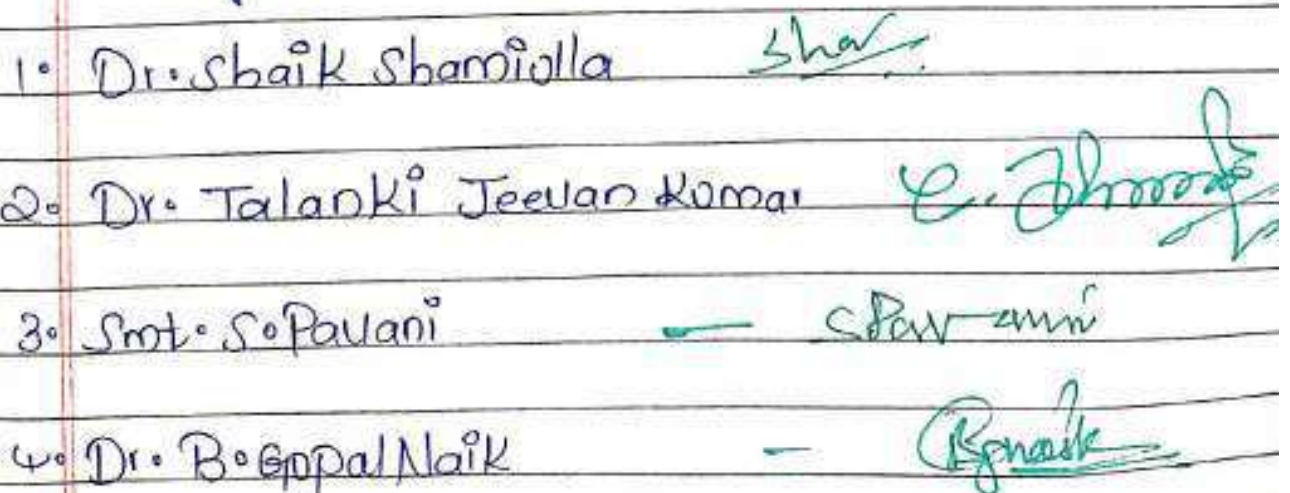 1. Dr. Shaik Shamiulla Sha
2. Dr. Talanki Jeevan Kumar
3. Smt. S. Pavani - S Pavani
4. Dr. B. Gopal Naik - BGnaik